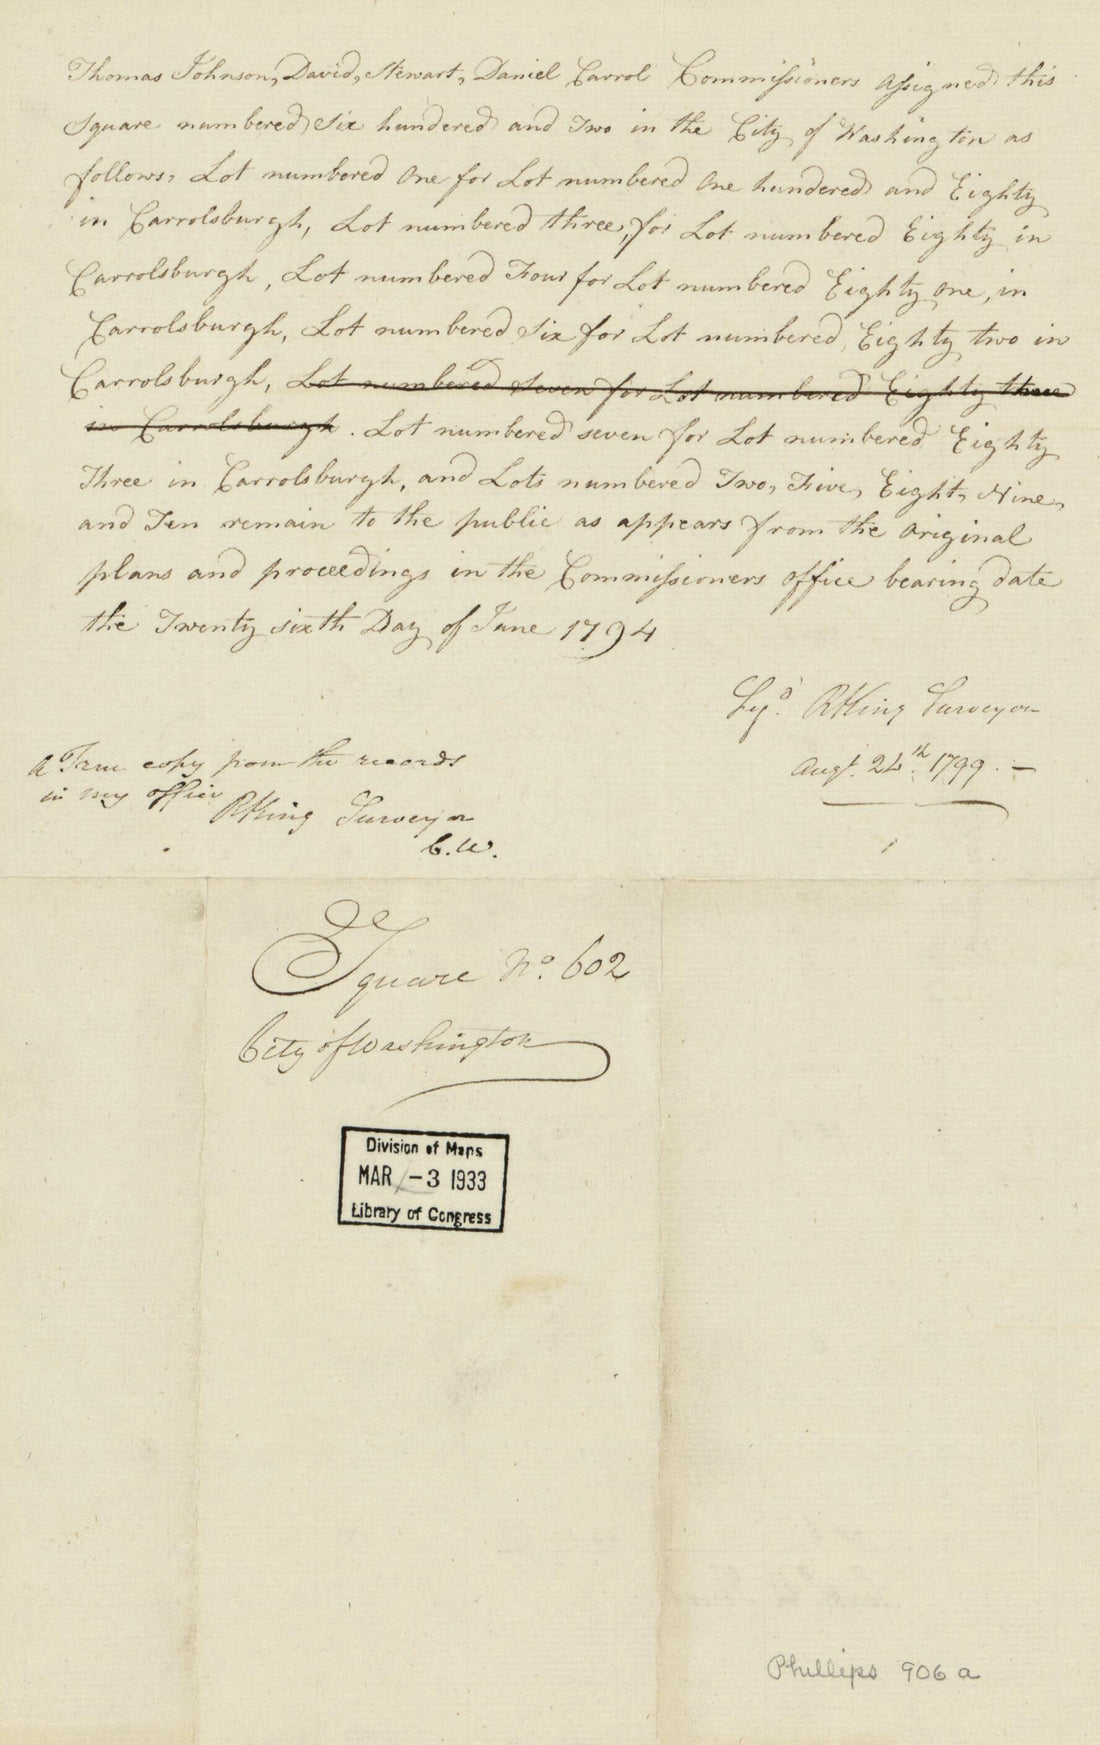 Thomas Johnson, David, Stewart, Daniel Carrol Commissioners Assigned this
Square numbered Six hundered and Two in the City of Washington as
follows, Lot numbered One for Lot numbered One hundered and Eighty
in Carrolsburgh, Lot numbered three, for Lot numbered Eighty in
Carrolsburgh, Lot numbered Four for Lot numbered Eighty One, in
Carrolsburgh, Lot numbered Six for Lot numbered Eighty two in
Carrolsburgh, Lot numbered seven for Lot numbered Eighty three
in Carrolsburgh. Lot numbered seven for Lot numbered Eighty
Three in Carrolsburgh, and Lots numbered Two, Five, Eight, Nine,
and Ten remain to the public as appears from the Original
plans and proceedings in the Commissioners office bearing date
the Twenty sixth Day of June 1794
Sigd. RKing Surveyor
Augt. 24th. 1799. —
A True copy from the records
in my office
RKing Surveyor
C.W.
Square No. 602
City of Washington
Division of Maps
MAR -3 1933
Library of Congress
Phillips 906 a